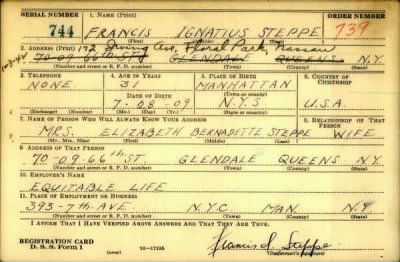 SERIAL NUMBER 1. NAME (Print) ORDER NUMBER
744 FRANCIS IGNATIUS STEPPE 739
(First) (Middle) (Last)
2. ADDRESS (Print) 172 Irving Ave, Floral Park, Nassau
70-09 66th ST GLENDALE QUEENS N.Y.
(Number and street or R. F. D. number) (Town) (County) (State)
3. TELEPHONE 4. AGE IN YEARS 5. PLACE OF BIRTH 6. COUNTRY OF CITIZENSHIP
NONE 31 MANHATTAN
DATE OF BIRTH (Town or county)
7-28-09 N.Y.S U.S.A.
(Mo.) (Day) (Yr.) (State or country)
7. NAME OF PERSON WHO WILL ALWAYS KNOW YOUR ADDRESS 8. RELATIONSHIP OF THAT PERSON
MRS. ELIZABETH BERNADETTE STEPPE WIFE
(Mr., Mrs., Miss) (First) (Middle) (Last)
9. ADDRESS OF THAT PERSON
70-09-66th ST. GLENDALE QUEENS N.Y.
(Number and street or R. F. D. number) (Town) (County) (State)
10. EMPLOYER'S NAME
EQUITABLE LIFE
11. PLACE OF EMPLOYMENT OR BUSINESS
393-7th AVE. NYC MAN. N.Y
(Number and street or R. F. D. number) (Town) (County) (State)
I AFFIRM THAT I HAVE VERIFIED ABOVE ANSWERS AND THAT THEY ARE TRUE.
REGISTRATION CARD
D. S. S. Form 1 16-17105 Francis I. Steppe
(Registrant's signature)